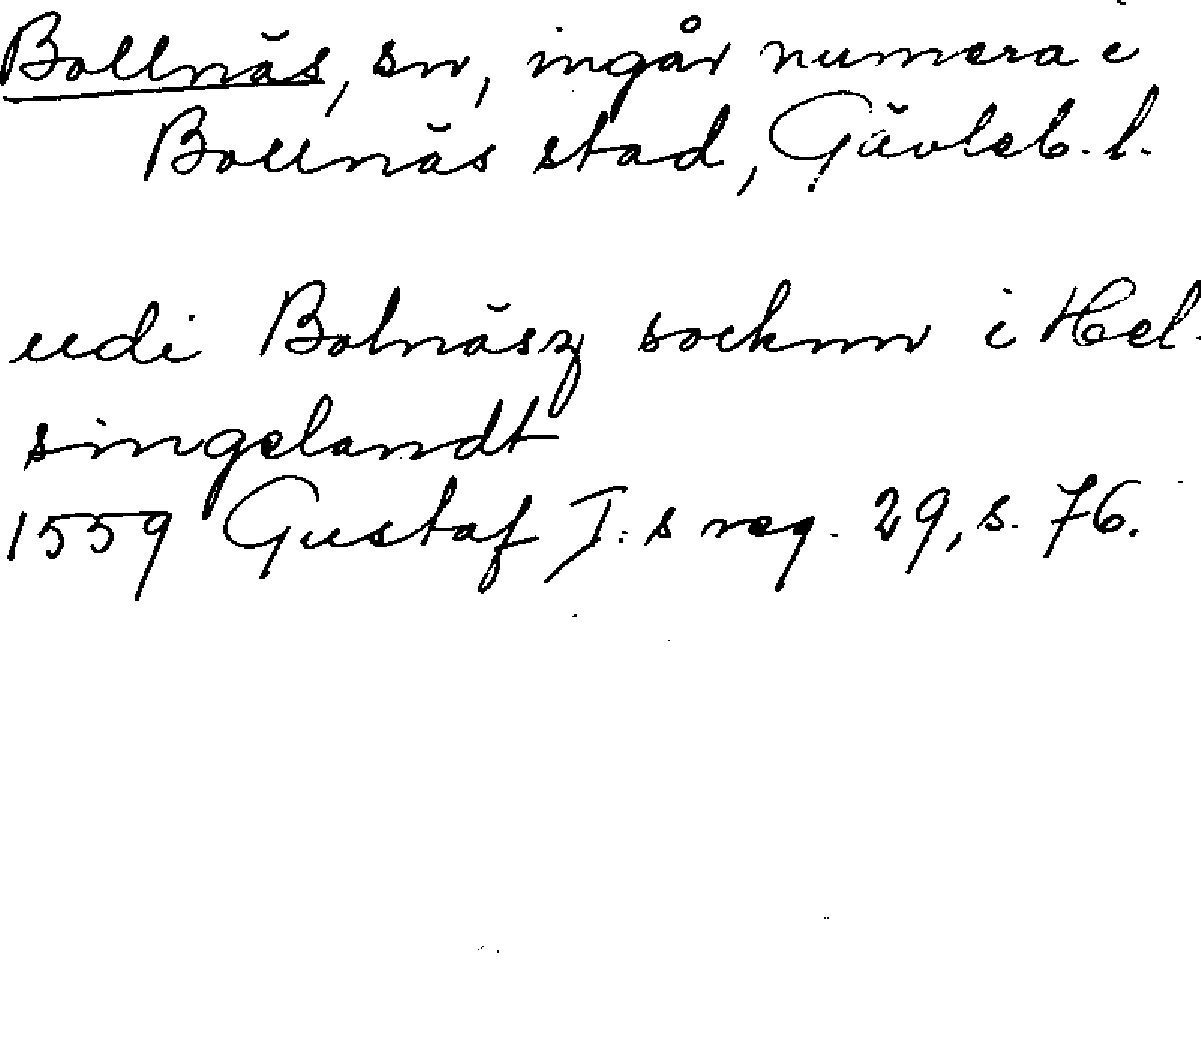 Bollnäs, sn, ingår numera i
Bollnäs stad, Gävleb. l.
udi Bolnäsz socknn i Hel-
singelandt
1559 Gustaf I:s reg. 29, s. 76.